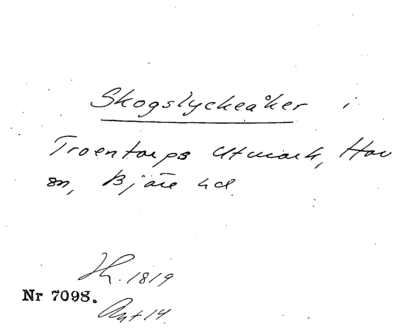 Skogslyckeåker i
Troentorps Utmark, Hov
sn, Bjäre hd
Jh. 1819
Nr 7098.
Ant 14